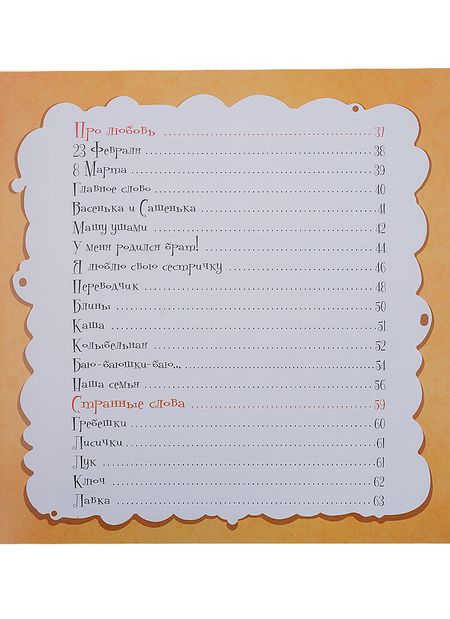 Про любовь 37
23 Февраля 38
8 Марта 39
Главное слово 40
Васенька и Сашенька 41
Машу ушами 42
У меня родился брат! 44
Я люблю свою сестричку 46
Переводчик 48
Блины 50
Каша 51
Колыбельная 52
Баю-баюшки-баю... 54
Наша семья 56
Странные слова 59
Гребешки 60
Лисички 61
Лук 61
Ключ 62
Лавка 63